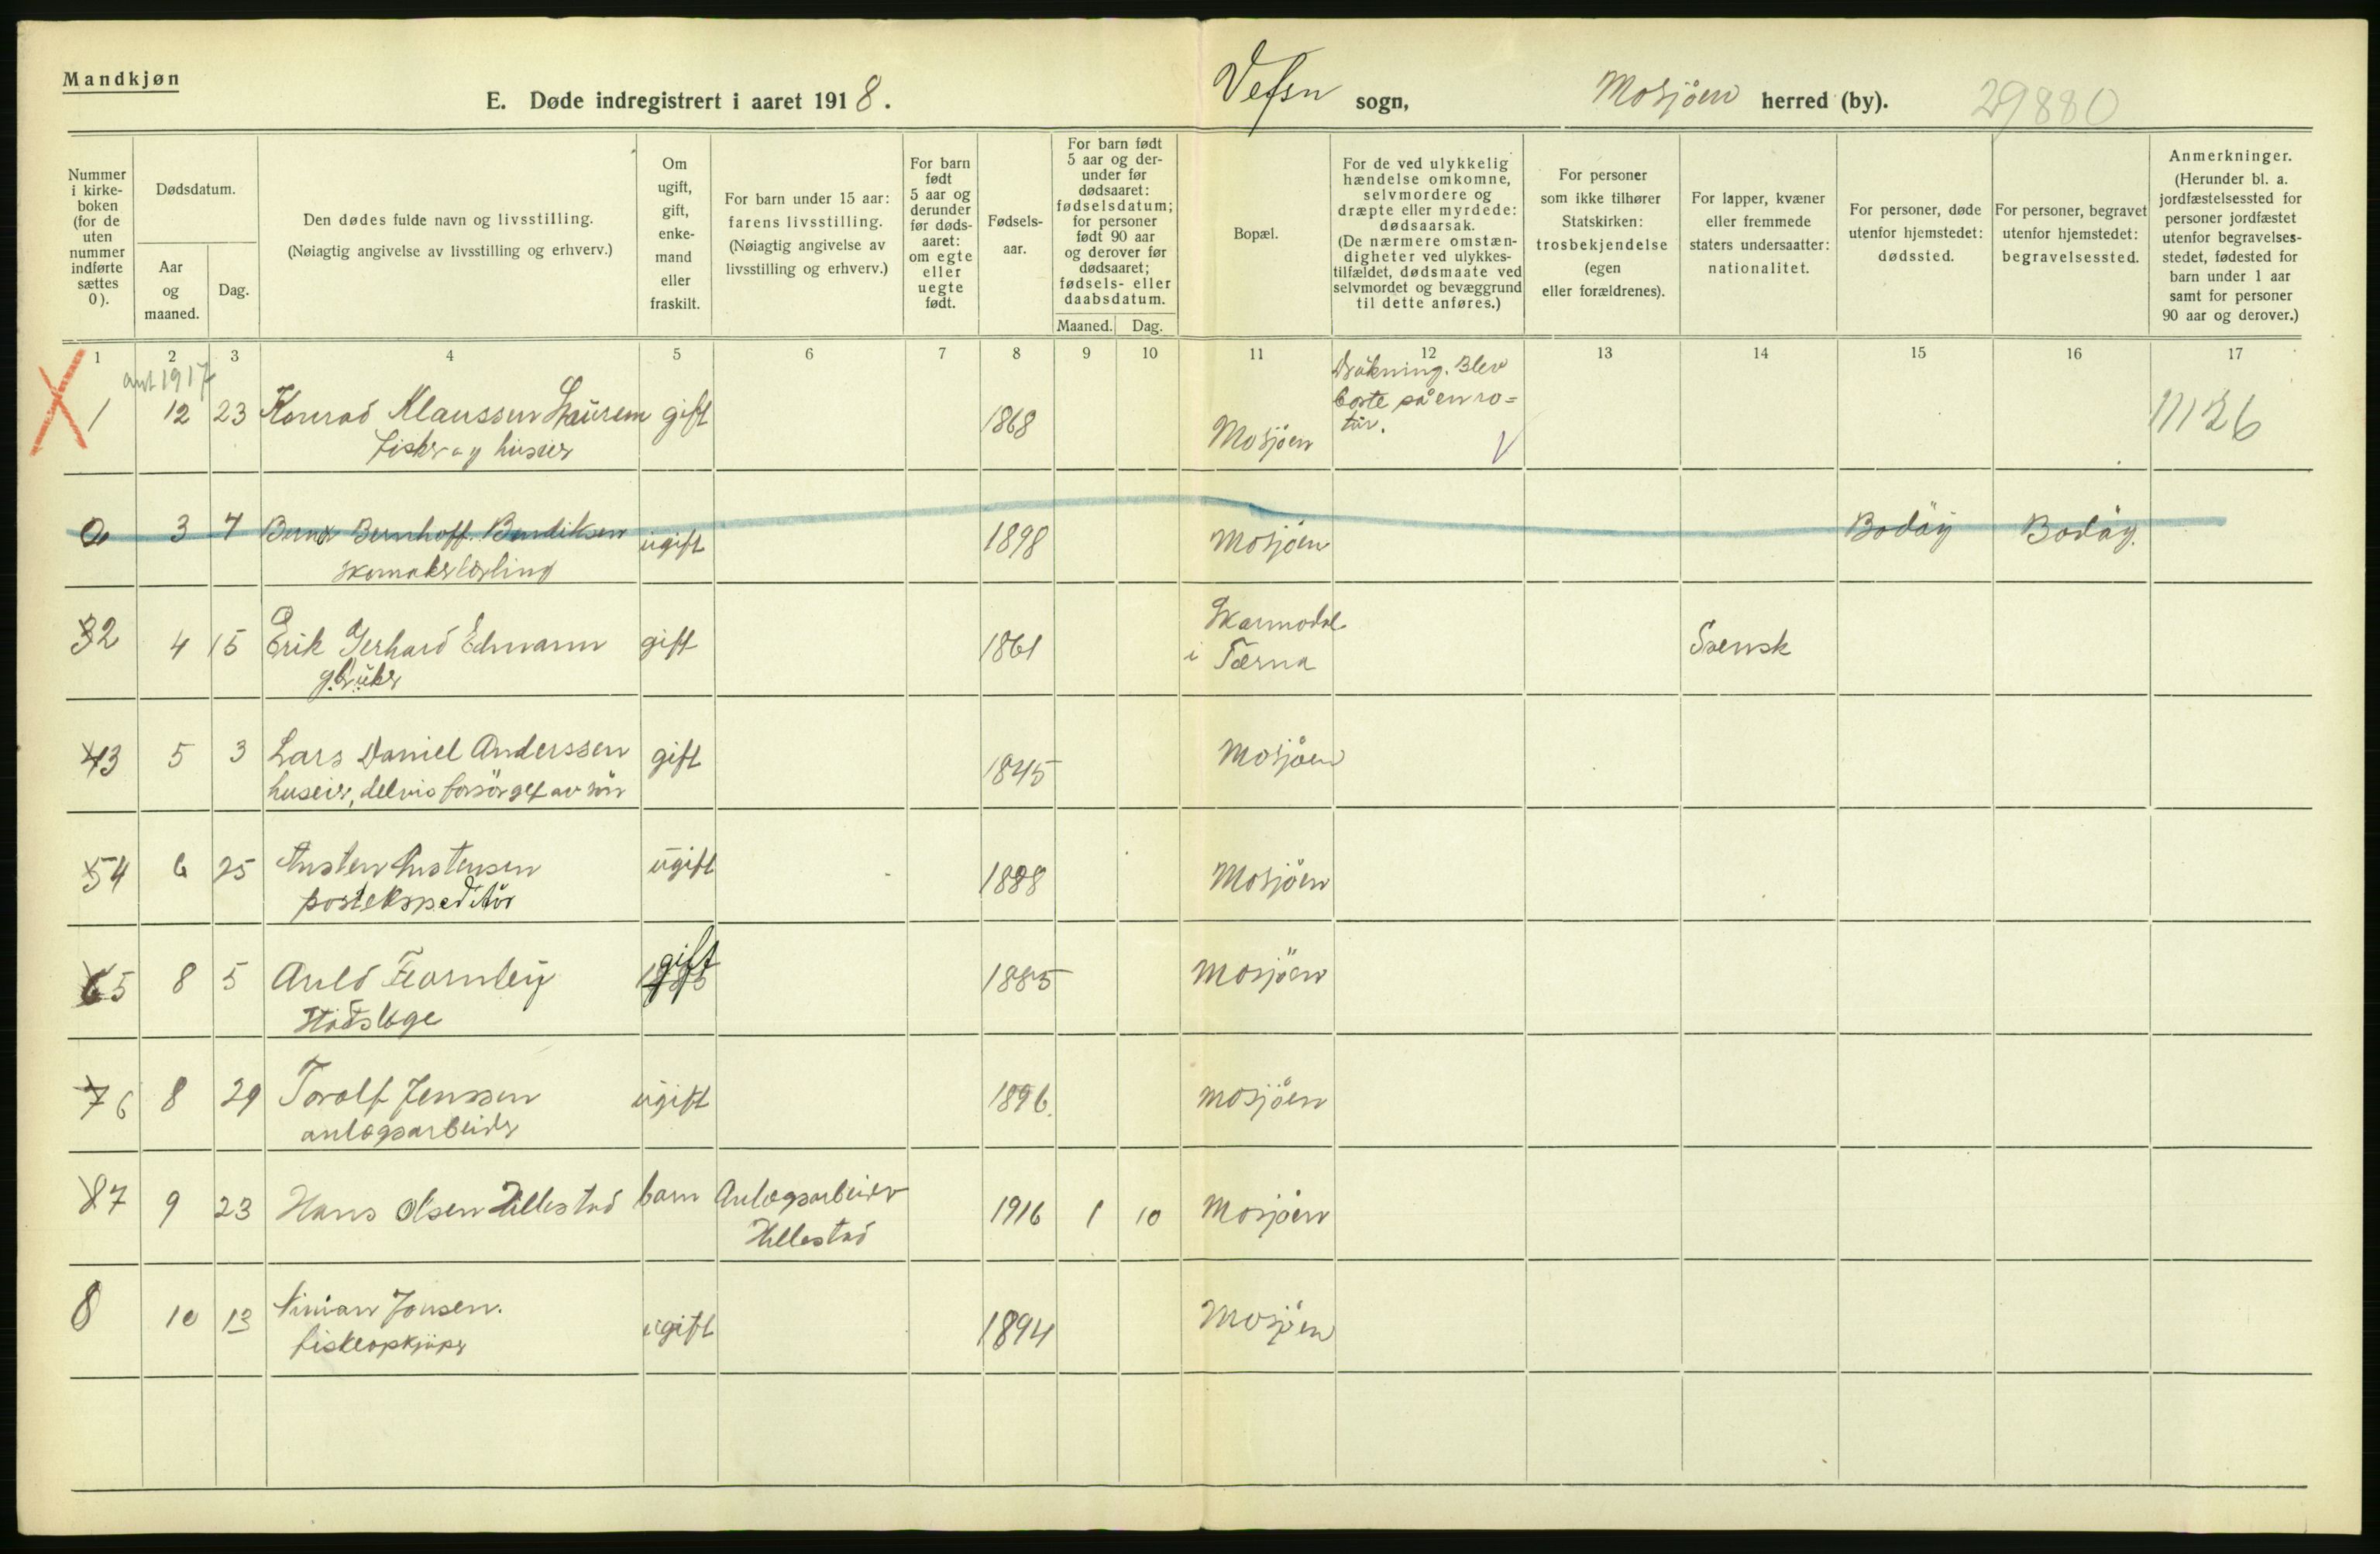 Mandkjøn
E. Døde indregistrert i aaret 1918.
Vefsn sogn,
Mosjöen herred (by).
29880
Nummer
i kirke-
boken
(for de
uten
nummer
indførte
sættes
0).
Dødsdatum.
Aar
og
maaned.
Dag.
Den dødes fulde navn og livsstilling.
(Nøiagtig angivelse av livsstilling og erhverv.)
Om
ugift,
gift,
enke-
mand
eller
fraskilt.
For barn under 15 aar:
farens livsstilling.
(Nøiagtig angivelse av
livsstilling og erhverv.)
For barn
født
5 aar og
derunder
før døds-
aaret:
om egte
eller
uegte
født.
Fødsels-
aar.
For barn født
5 aar og der-
under før
dødsaaret:
fødselsdatum;
for personer
født 90 aar
og derover før
dødsaaret;
fødsels- eller
daabsdatum.
Maaned. Dag.
Bopæl.
For de ved ulykkelig
hændelse omkomne,
selvmordere og
dræpte eller myrdede:
dødsaarsak.
(De nærmere omstæn-
digheter ved ulykkes-
tilfældet, dødsmaate ved
selvmordet og bevæggrund
til dette anføres.)
For personer
som ikke tilhører
Statskirken:
trosbekjendelse
(egen
eller forældrenes).
For lapper, kvæner
eller fremmede
staters undersaatter:
nationalitet.
For personer, døde
utenfor hjemstedet:
dødssted.
For personer, begravet
utenfor hjemstedet:
begravelsessted.
Anmerkninger.
(Herunder bl. a.
jordfæstelsessted for
personer jordfæstet
utenfor begravelses-
stedet, fødested for
barn under 1 aar
samt for personer
90 aar og derover.)
1 2 3 4 5 6 7 8 9 10 11 12 13 14 15 16 17
1917
1 12 23 Konrad Klaussen gift 1868 Mosjöen
Drukning. Blev
borte på en ro=
tur.
1126
fisker og huseier
3 7 Bernhoff Bendiksen ugift 1898 Mosjöen Bodäy Bodäy.
skomakerlærling
32 4 15 Erik Gerhard Edmann gift 1861
Skarmodal
i Tærna
Svensk
gbruker
43 5 3 Lars Daniel Anderssen gift 1845 Mosjöen
huseier, delvis forsörget av sön
54 6 25 Austen Austensen ugift 1888 Mosjöen
postekspeditör
65 8 5 gift 1885 Mosjöen
Stadslæge
76 8 29 Torolf Jenssen ugift 1896. Mosjöen
anlægsarbeider
87 9 23 Hans Olsen Hillestad barn Anlægsarbeider 1916 1 10 Mosjöen
Hillestad
8 10 13 Jonsen. ugift 1894 Mosjöen
fiskeopkjöper